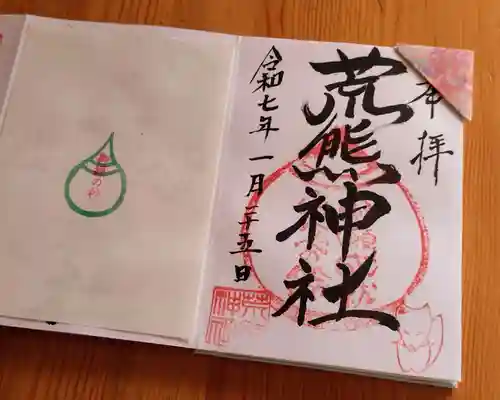 奉拝
荒熊神社
令和七年一月二十五日